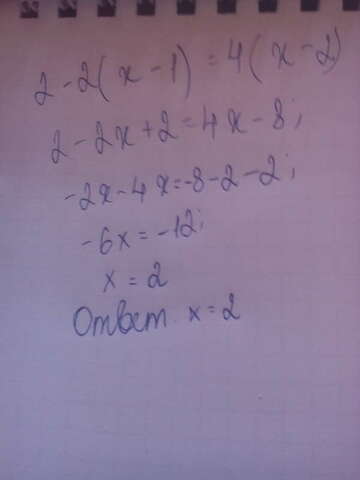 2-2(x-1)=4(x-2)
2-2x+2=4x-8;
-2x-4x=-8-2-2;
-6x=-12;
x=2
Ответ. x=2